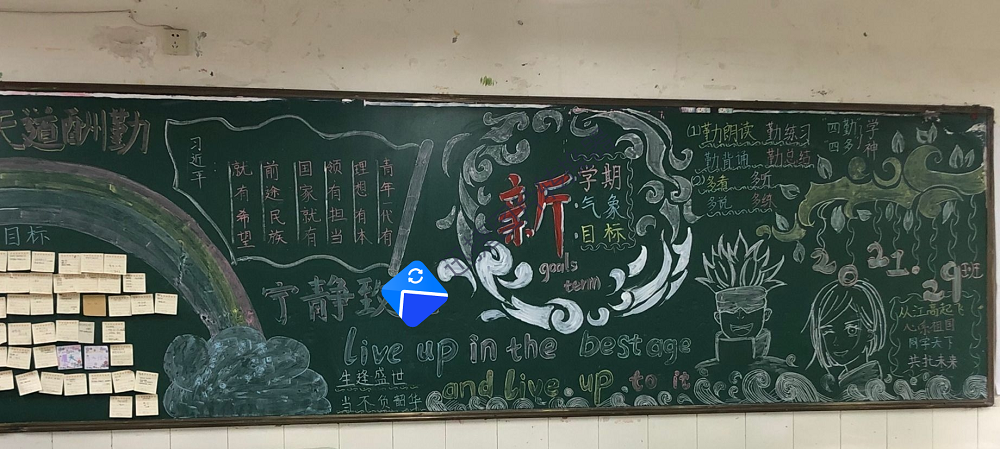 天道酬勤
目标
习近平
青年一代有
理想有本
领有担当
国家就有
前途民族
就有希望
宁静致
新
学期
气象
目标
goals
term
Live up in the best age
and live up to it
生逢盛世
当不负韶华
(1)勤朗读 勤练习
勤背诵 勤总结
(2)多看 多听
多说 多练
四勤 学
四多 神
2021.9
班
从江高起飞
心系祖国
同学天下
共扎未来